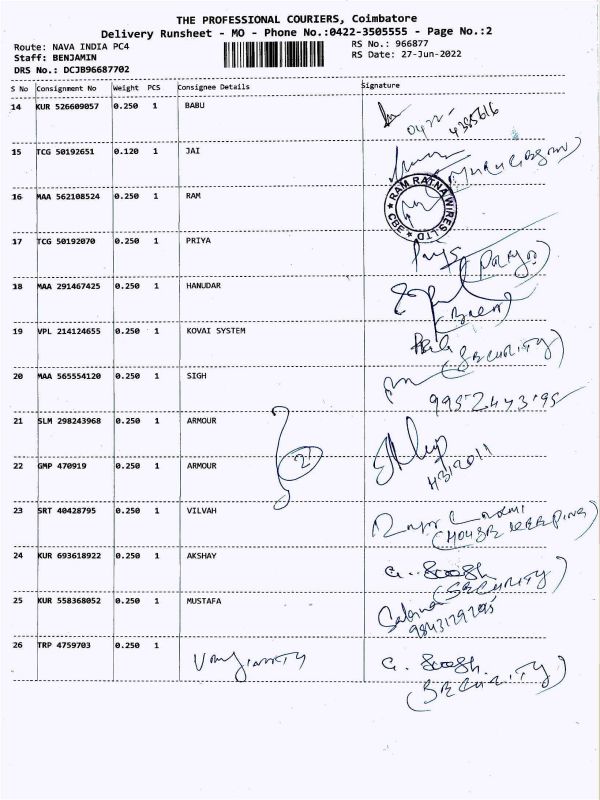 THE PROFESSIONAL COURIERS, Coimbatore
Delivery Runsheet - MO - Phone No.:0422-3505555 - Page No.:2
Route: NAVA INDIA PC4
RS No.: 966877
Staff: BENJAMIN
RS Date: 27-Jun-2022
DRS No.: DCJB96687702
S No Consignment No Weight PCS Consignee Details Signature
14 KUR 526609057 0.250 1 BABU
0422-
4385616
15 TCG 50192651 0.120 1 JAI
16 MAA 562108524 0.250 1 RAM
RAM RATNA WIRES LTD ★ CBE ★
17 TCG 50192070 0.250 1 PRIYA
18 MAA 291467425 0.250 1 HANUDAR
19 VPL 214124655 0.250 1 KOVAI SYSTEM
(SECURITY)
20 MAA 565554120 0.250 1 SIGH
21 SLM 298243968 0.250 1 ARMOUR
2
22 GMP 470919 0.250 1 ARMOUR
23 SRT 40428795 0.250 1 VILVAH
(HOUSE KEEPING)
24 KUR 693618922 0.250 1 AKSHAY
(SECURITY)
25 KUR 558368052 0.250 1 MUSTAFA
26 TRP 4759703 0.250 1
(SECURITY)